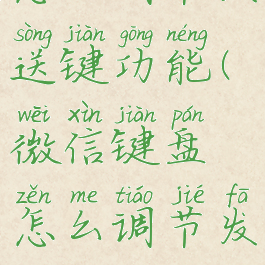 sòng jiàn gōng néng
送键功能(
wēi xìn jiàn pán
微信键盘
zěn me tiáo jié fā
怎么调节发